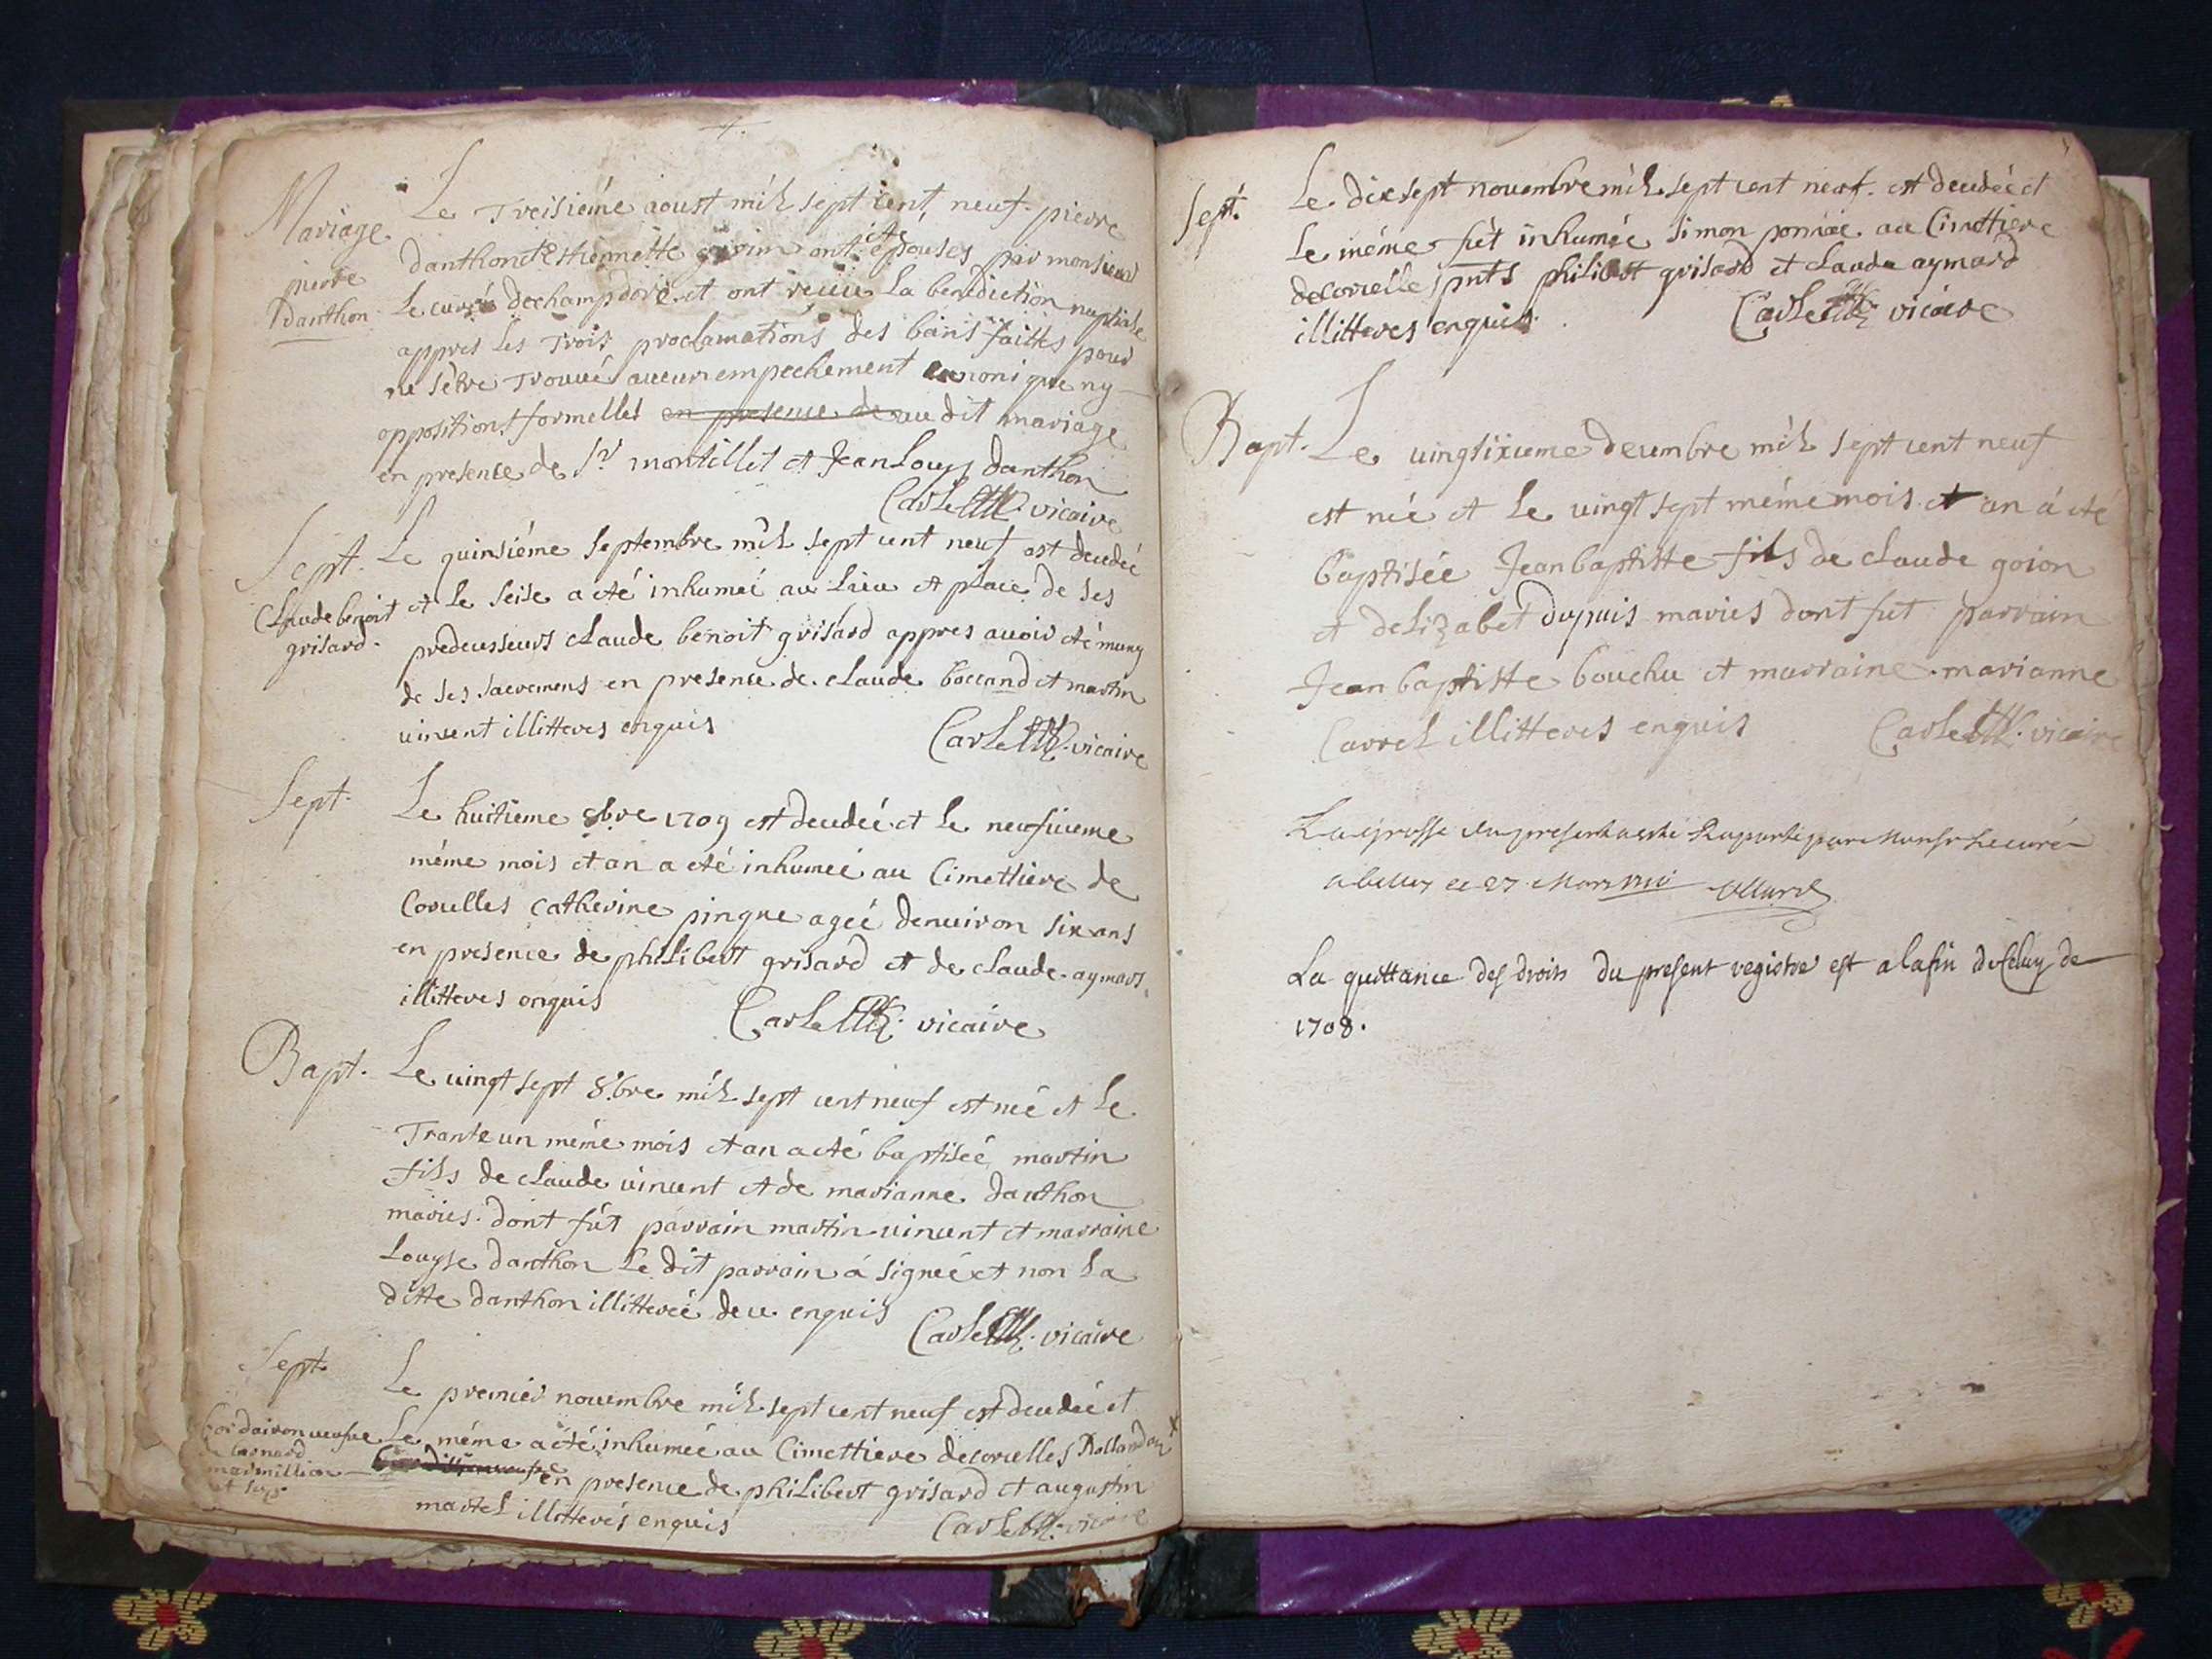 Mariage
pierre
danthon
Le Treisiéme aoust mil sept cent neuf pierre
danthon et Estiennette ont été épousés par monsieur
Le curé dechampdore et ont reçüe La benediction nuptiale
appres Les Trois proclamations des bans faittes pour
ne s'estre Trouvé aucun empechement canonique ny
oppositions formelles en presence de au dit mariage
en presence de Sr montillet et Jean Louys danthon
Carle vicaire
Sept.
Claude benoit
grisard.
Le quinsiéme Septembre mil sept cent neuf est decedeé
et Le seise a eté inhumeé au Lieu et place de ses
predecesseurs cLaude benoit grisard appres auoir eté muny
de ses sacremens en presence de cLaude boccand et martin
uincent illitteres enquis
CarLe vicaire
Sept.
Le huitieme 8bre 1709 est decedeé et Le neufuieme
même mois et an a eté inhumeé au Cimettiere de
Corcelles Catherine pingue ageé denuiron six ans
en presence de phiLibert grisard et de cLaude aymard
illitteres enquis
CarLe vicaire
Bapt.
Le uingt sept 8.bre mil sept cent neuf est neé et Le
Trante un même mois et an a eté baptiseé martin
fils de cLaude uincent et de marianne danthon
maries. dont fút parrain martin uincent et marraine
Louyse danthon Le dit parrain á signeé et non La
ditte danthon illittereé de ce enquis
CarLe vicaire
Sept.
Le premier nouembre mil sept cent neuf est decedeé et
Le même a eté inhumeé au Cimettiere decorcelles
en presence de phiLibert grisard et augustin
martel illitterés enquis
CarLe vicaire
Sept.
Le dix sept nouembre mil sept cent neuf est decedeé et
Le même fut inhumeé Simon au Cimettiere
decorcelle pnts phiLibert grisard et cLaude aymard
illitteres enquis
CarLe vicaire
Bapt.
Le uingsixieme decembre mil sept cent neuf
est neé et Le uingt sept même mois et an á eté
baptiseé Jean baptiste fils de cLaude goion
et delizabet dupuis maries dont fut parrain
Jean baptiste bouchu et marraine marianne
Carrel illitteres enquis
CarLe vicaire
La grosse du present a esté Raporté par Monsr Le curé
a belley ce 27 Mars
La quittance des droits du present registre est a la fin de celuy de
1708.